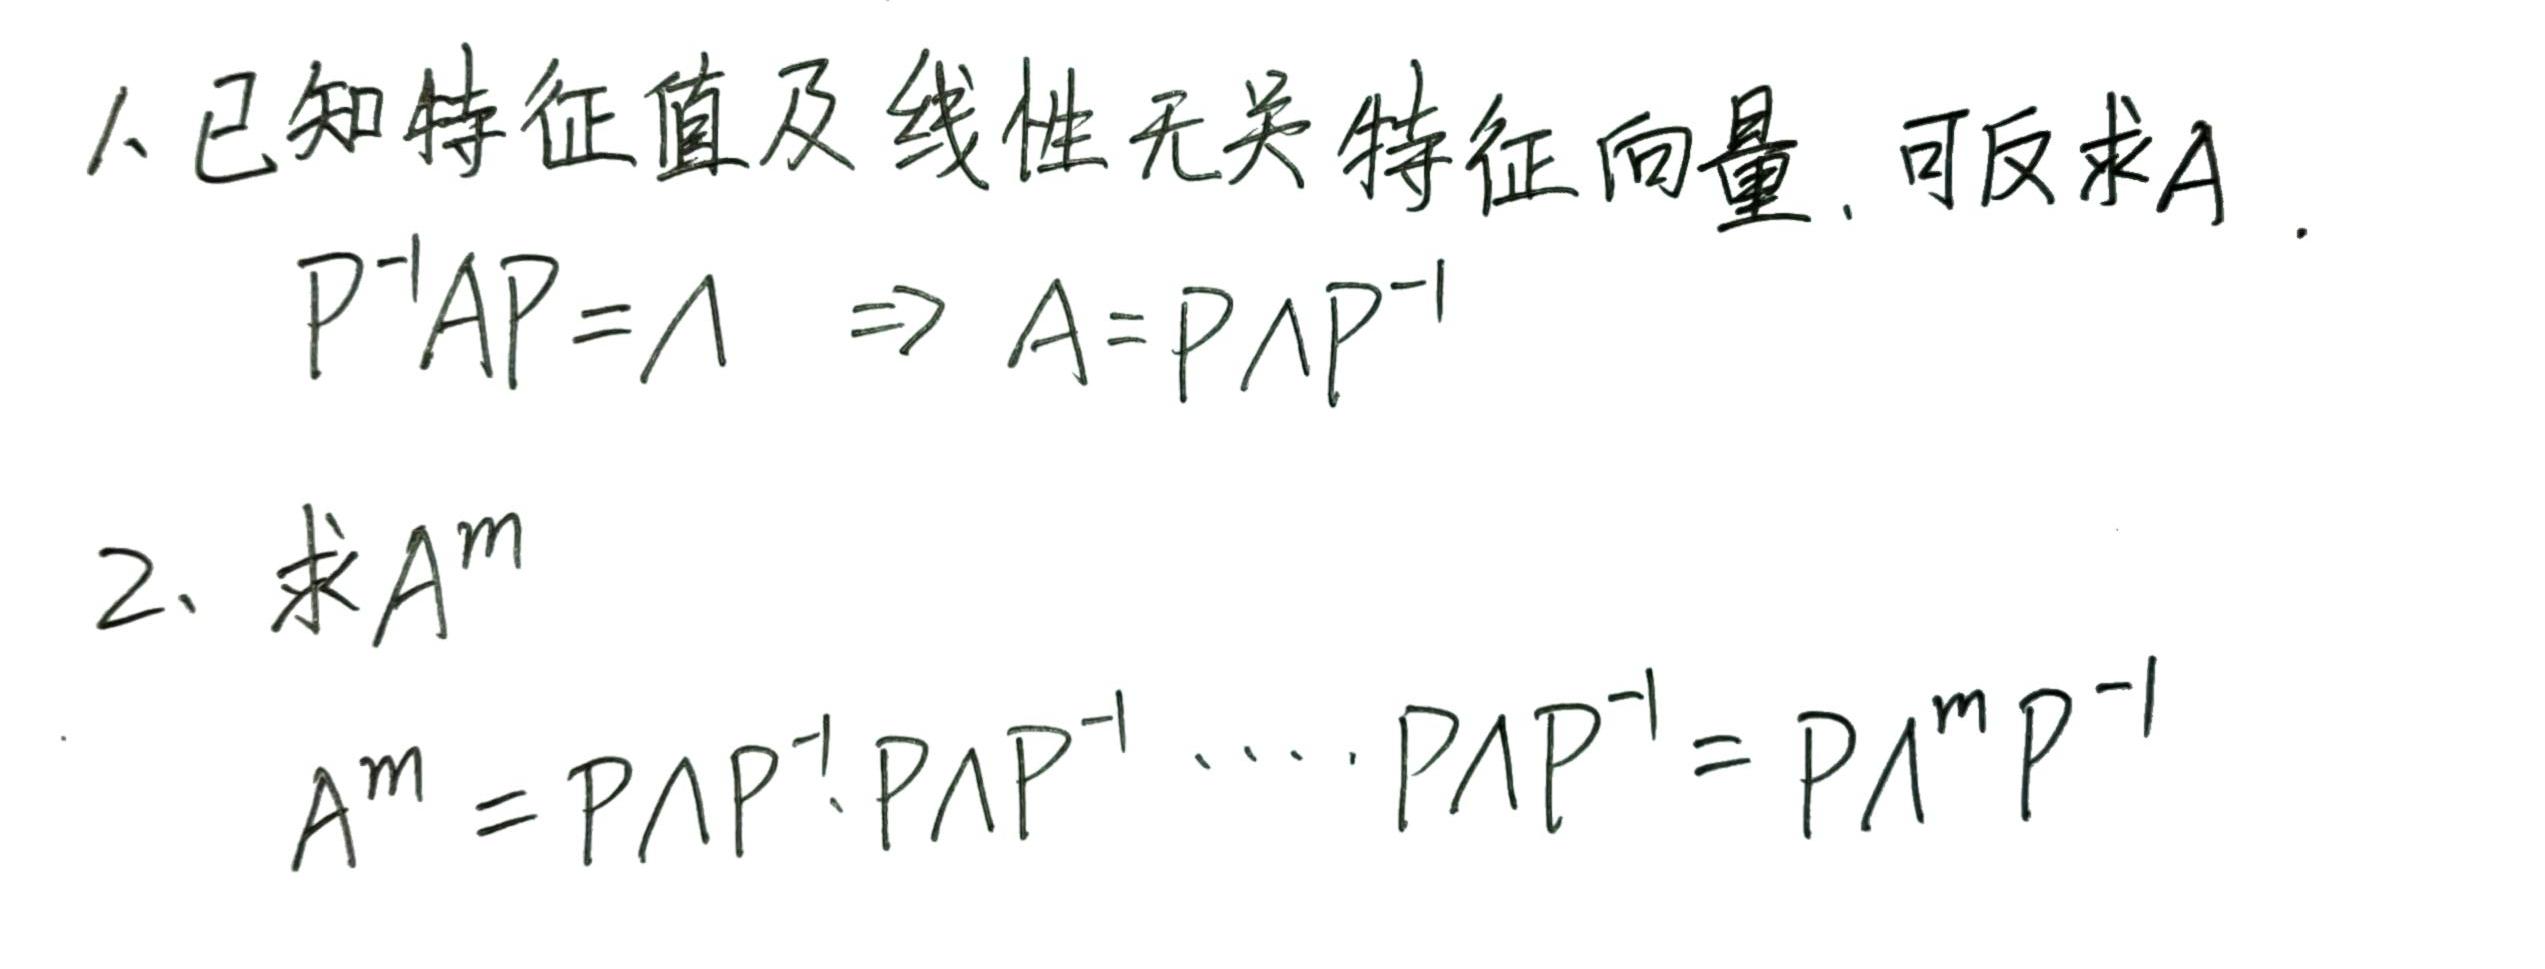 1、已知特征值及线性无关特征向量.可反求A.
P⁻¹AP=Λ ⇒ A=PΛP⁻¹
2、求Aᵐ
Aᵐ=PΛP⁻¹·PΛP⁻¹·····PΛP⁻¹=PΛᵐP⁻¹